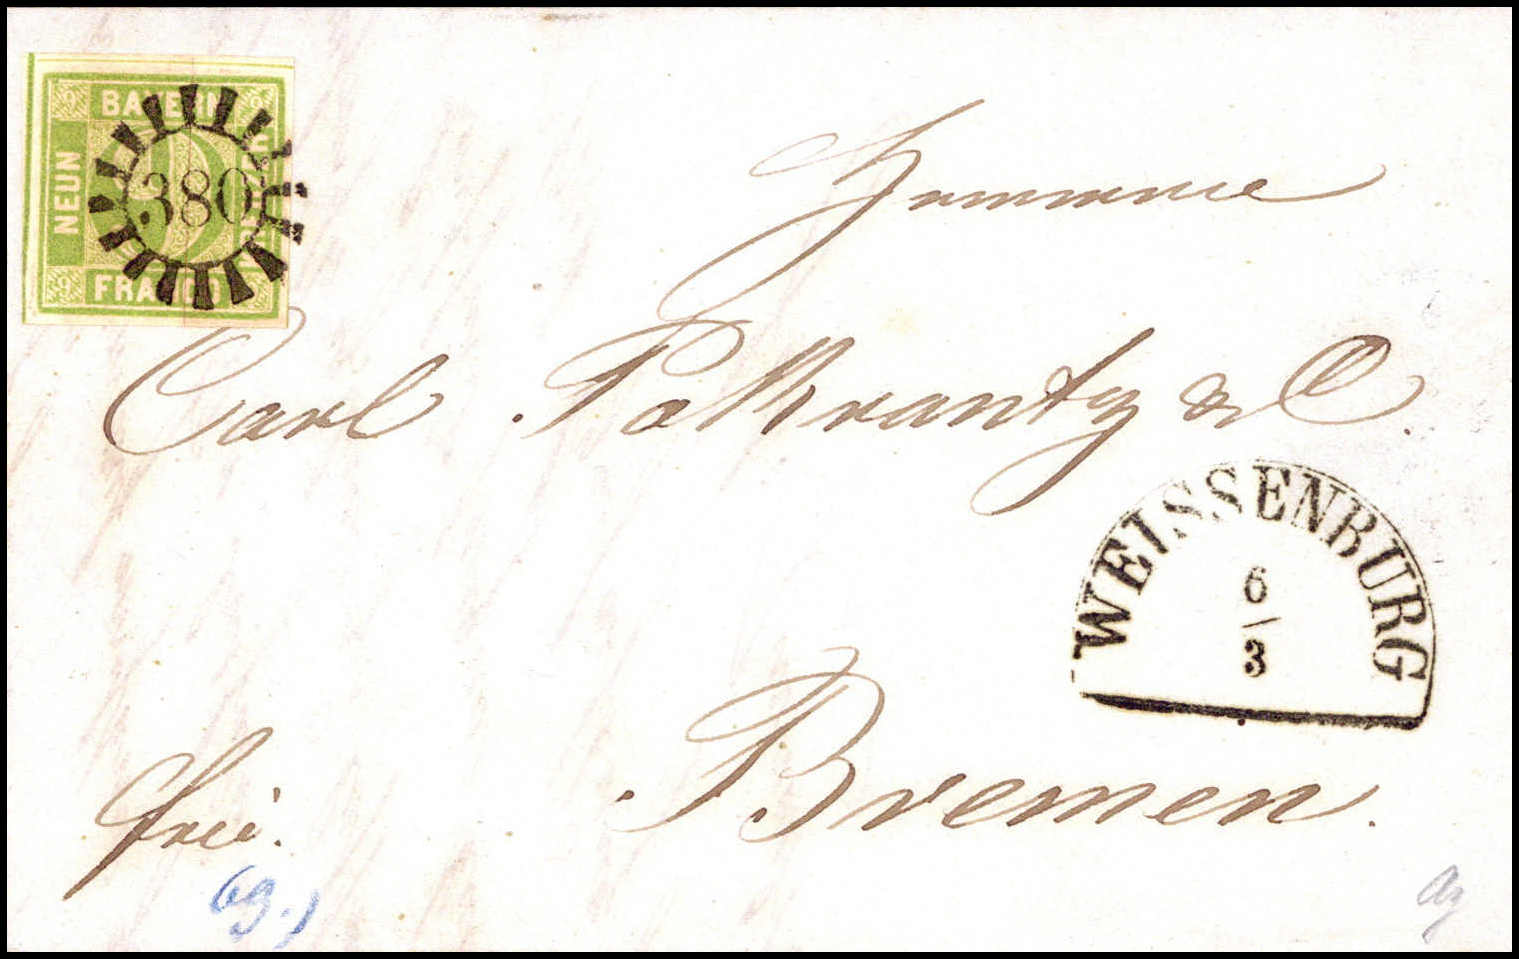 BAYERN
NEUN
KREUZER
FRANCO
9
380
Carl Polkrantz & C.
WEISSENBURG
6
3
Bremen.
frei.